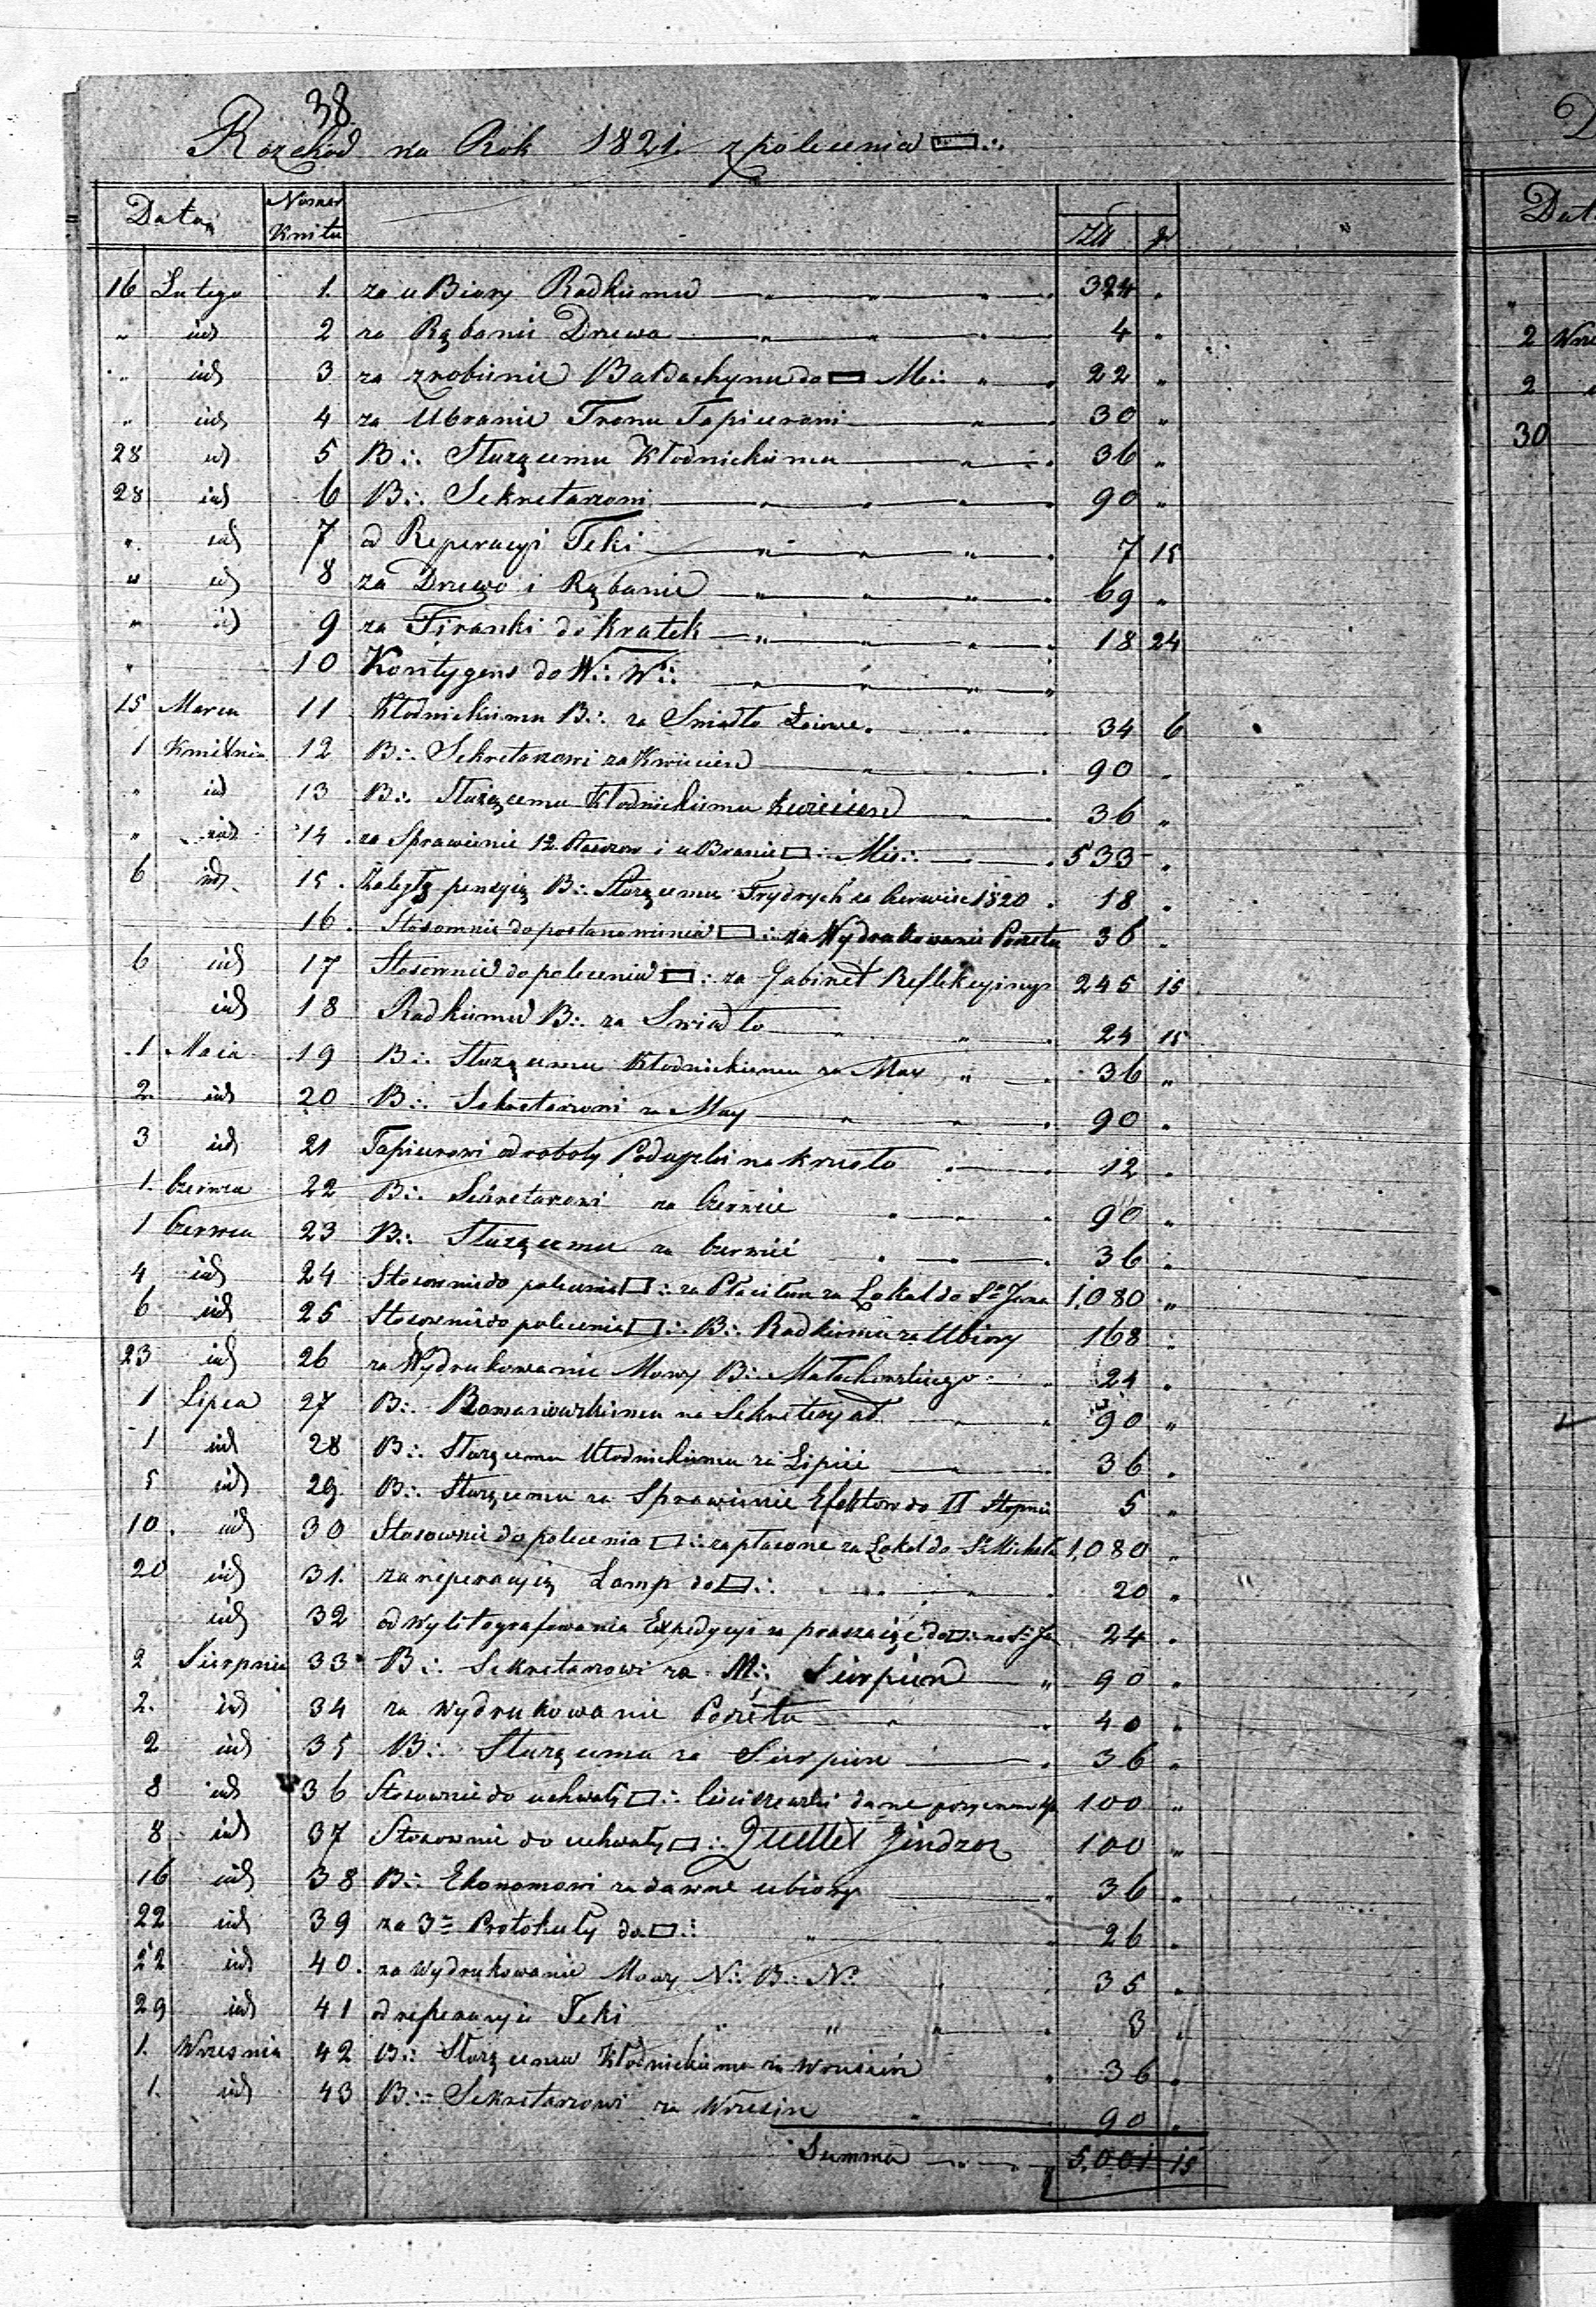 38.
Rozchód na Rok 1821. z polecenia ▭∴
Data Numer Kwitu Złt gr
16 Lutego 1. za uBiory Radkiemu 324 "
" id 2 za Rąbanie Drzewa 4 "
" id 3 za zrobienie Baldachynu do ▭ M∴ 22 "
" id 4 za Ubranie Tronu Tapicerowi 30 "
28 id 5 B∴ Służącemu Kłodnickiemu 36 "
28 id 6 B∴ Sekretarzowi 90 "
" id 7 od Reperacyi Teki 7 15
" id 8 za Drzewo i Rąbanie 69 "
" id 9 za Firanki do kratek 18 24
" 10 Kontygens do W∴ W∴
15 Marca 11 Kłodnickiemu B∴ za Swiatło Łoiowe 34 6
1 Kwietnia 12 B∴ Sekretarzowi za Kwiecień 90 "
" id 13 B∴ Służącemu Kłodnickiemu Kwiecień 36 "
" id 14. za Sprawienie 12. i uBranie ▭∴ 533 "
6 id 15. Zaległą pensyią B∴ Służącemu Frydrych za Czerwiec 1820 18 "
16. Stosownie do postanowienia ▭∴ za Wydrukowanie Pocztu 36 "
6 id 17 Stosownie do polecenia ▭∴ za Gabinet Reflekcyiny 245 15
id 18 Radkiemu B∴ za Swiatło 24 15
1 Maia 19 B∴ Służącemu Kłodnickiemu za May 36 "
2. id 20 B∴ Sekretarzowi za May 90 "
3 id 21 Tapicerowi od roboty na krzesło 12 "
1. Czerwca 22 B∴ Sekretarzowi za Czerwiec 90 "
1 Czerwca 23 B∴ Służącemu za Czerwiec 36 "
4 id 24 Stosownie do polecenia ▭∴ za Lokal do Sgo Jana 1,080 "
6 id 25 Stosownie do polecenia ▭∴ B∴ Radkiemu za Ubiory 168 "
23 id 26 za Wydrukowanie Mowy B∴ Małachowskiego 24 "
1 Lipca 27 B∴ na Sekretaryat 90 "
1 id 28 B∴ Służącemu Kłodnickiemu za Lipiec 36 "
5 id 29 B∴ Służącemu za Sprawienie Efektow do II Stopnia 5 "
10. id 30 Stosownie do polecenia ▭∴ zapłacone za Lokal do Sgo Michała 1,080 "
20 id 31. za reperacyię Lamp do ▭∴ 20 "
id 32 od Wylitografowania do ▭∴ na S. Ja 24 "
2 Sierpnia 33 B∴ Sekretarzowi za M∴ Sierpień 90 "
2. id 34 za Wydrukowanie Pocztu 40 "
2 id 35 B∴ Służącemu za Sierpień 36 "
8 id 36 Stosownie do uchwały ▭∴ dane 100 "
8 id 37 Stosownie do uchwały ▭∴ 100 "
16 id 38 B∴ Ekonomowi za dawne ubiory 36 "
22 id 39 za 3 Protokuły do ▭∴ 26 "
22 id 40. za Wydrukowanie Mowy N∴ B∴ N∴ 35 "
29 id 41 od reperacyi Teki 3 "
1. Wrzesnia 42 B∴ Służącemu Kłodnickiemu za Wrzesień 36 "
1. id 43 B∴ Sekretarzowi za Wrzesień 90 "
Summa 5,001 15
Dat
2 Wrze
2 "
30